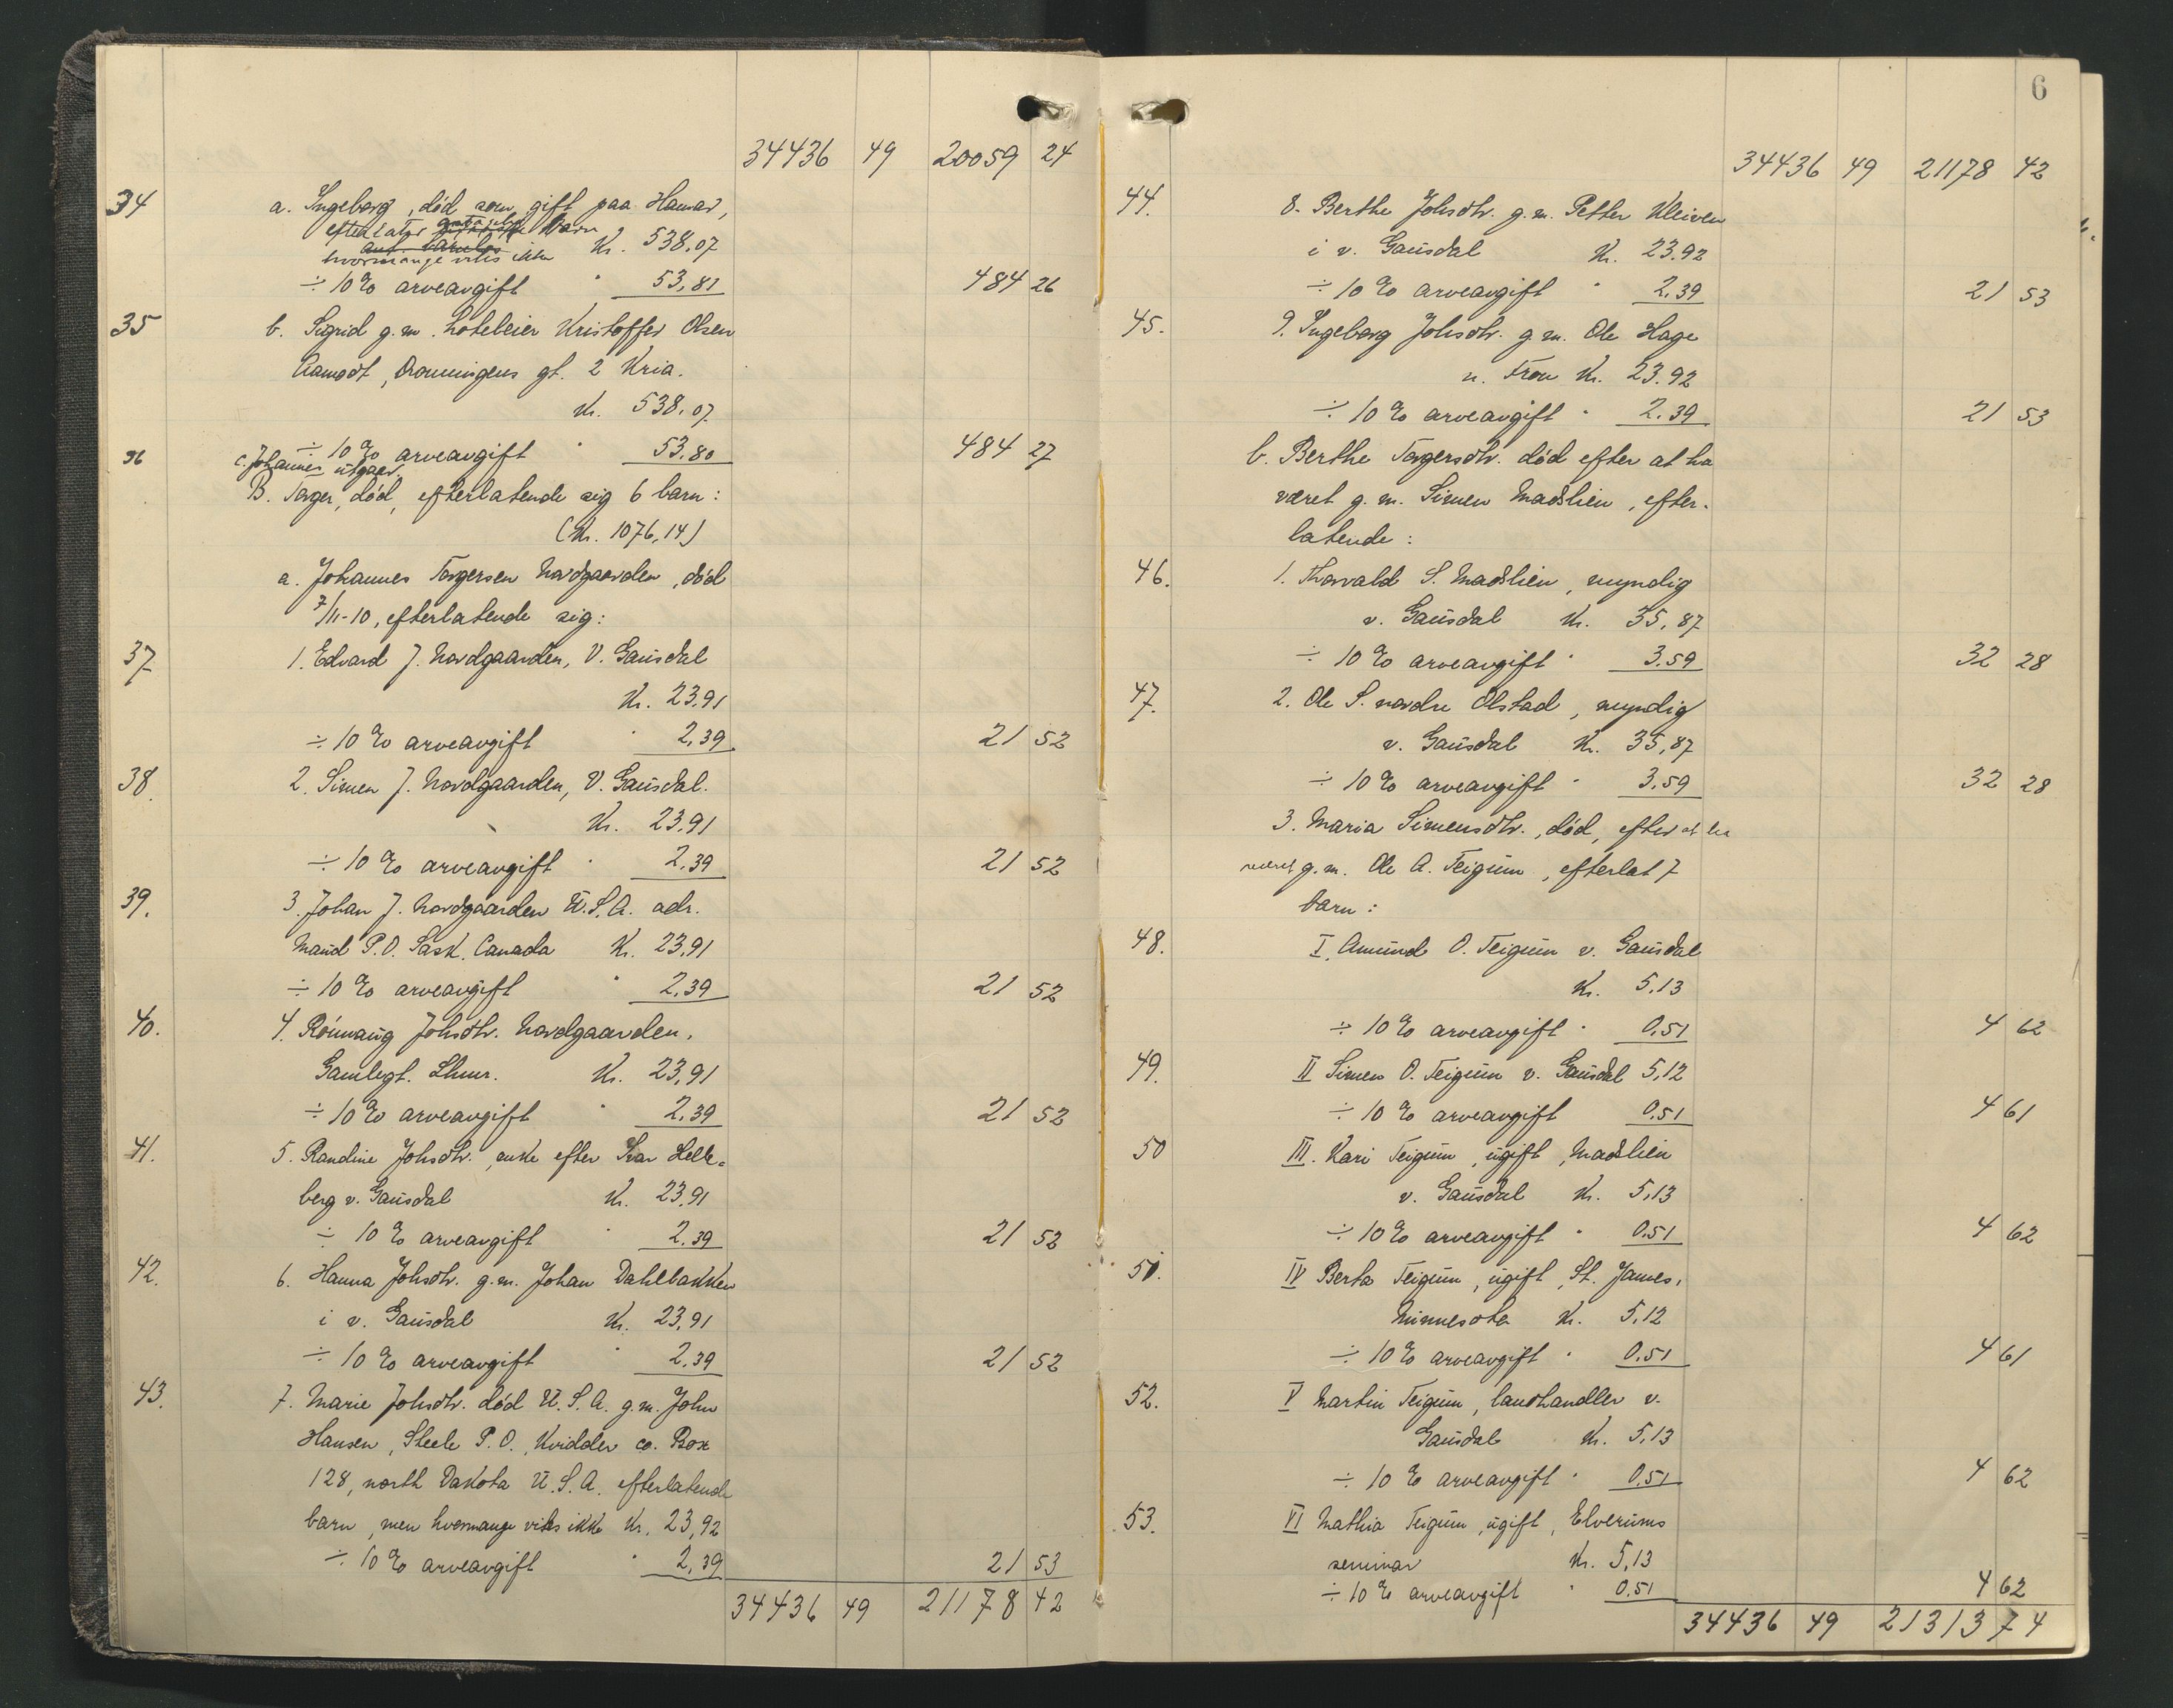 34436 49 20059 24
34 a. Ingeborg, død som gift paa Hamar,
efterlater barn
hvormange vites ikke Kr. 538,07
÷ 10 % arveavgift " 53,81 484 26
35 b. Sigrid g.m. hoteleier Kristoffer Olsen
Aamodt, Dronningens gt. 2 Kria.
Kr. 538,07
÷ 10 % arveavgift " 53,80 484 27
36 c. Johannes utgaar
B. Torger, død, efterlatende sig 6 barn:
(Kr. 1076,14)
a. Johannes Torgersen Nordgaarden, død
7/11-10, efterlatende sig:
37 1. Edvard J. Nordgaarden, V. Gausdal
Kr. 23,91
÷ 10 % arveavgift " 2,39 21 52
38. 2. Simen J. Nordgaarden, V. Gausdal.
Kr. 23,91
÷ 10 % arveavgift " 2,39 21 52
39. 3. Johan J. Nordgaarden U.S.A. adr.
Maud P.O. Sask. Canada Kr. 23,91
÷ 10 % arveavgift " 2,39 21 52
40. 4. Rönnaug Johsdtr. Nordgaarden,
Gamlegt. Lhmr. Kr. 23,91
÷ 10 % arveavgift " 2,39 21 52
41. 5. Randine Johsdtr., enke efter Ivar Helle-
berg v. Gausdal Kr. 23,91
÷ 10 % arveavgift " 2,39 21 52
42. 6. Hanna Johsdtr. g.m. Johan Dahlbakken
i v. Gausdal Kr. 23,91
÷ 10 % arveavgift " 2,39 21 52
43. 7. Marie Johsdtr. død U.S.A. g.m. John
Hansen, Steele P.O., Kvidder co. Box
128, north Dakota U.S.A. efterlatende
barn, men hvormange vites ikke Kr. 23,92
÷ 10 % arveavgift " 2,39 21 53
34436 49 21178 42
6
34436 49 21178 42
44. 8. Berthe Johsdtr. g.m. Petter Kleiven
i v. Gausdal Kr. 23.92
÷ 10 % arveavgift " 2,39 21 53
45. 9. Ingeborg Johsdtr. g.m. Ole Hage
n. Fron Kr. 23.92
÷ 10 % arveavgift " 2.39 21 53
b. Berthe Torgersdtr. død efter at ha
været g.m. Simen Madslien, efter-
latende:
46. 1. Thorvald S. Madslien, myndig
v. Gausdal Kr. 35,87
÷ 10 % arveavgift " 3.59 32 28
47. 2. Ole S. nordre Olstad, myndig
v. Gausdal Kr. 35,87
÷ 10 % arveavgift " 3,59 32 28
3. Maria Simensdtr., død, efter at ha
været g.m. Ole A. Teigum, efterlat 7
barn:
48. I. Amund O. Teigum v. Gausdal
Kr. 5,13
÷ 10 % arveavgift " 0,51 4 62
49. II Simen O. Teigum v. Gausdal 5,12
÷ 10 % arveavgift 0,51 4 61
50 III. Kari Teigum, ugift, Madslien
v. Gausdal Kr. 5,13
÷ 10 % arveavgift " 0.51 4 62
51. IV Berta Teigum, ugift, St. James,
Minnesota Kr. 5,12
÷ 10 % arveavgift " 0.51 4 61
52. V Martin Teigum, landhandler v.
Gausdal Kr. 5,13
÷ 10 % arveavgift " 0.51 4 62
53. VI Mathia Teigum, ugift, Elverums
seminar Kr. 5,13
÷ 10 % arveavgift " 0.51 4 62
34436 49 21313 74